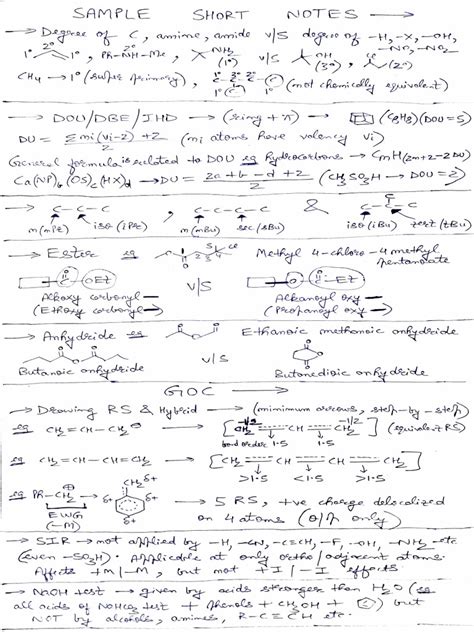 SAMPLE SHORT NOTES
→ Degree of C, amine, amide v/s degree of -H, -X, -OH,
-NO, -NO2
1° 1°, Ph-NH-Me, NH2 (1°) v/s OH (3°), (2°)
CH4 → 1° (super primary), (not chemically equivalent)
→ DOU/DBE/IHD → (ring + π) → (C8H8) (DOU = 5)
DU = Σni(vi-2) + 2 / 2 (ni atoms have valency vi)
General formula is related to DOU eg hydrocarbons → CmH(2m+2-2DU)
Ca(NP)b(OS)c(HX)d → DU = 2a+b-d+2 / 2 (CH3SO3H → DOU = 0)
→ C-C-C, C-C-C-C & C-C-C
n(nPr) iso (iPr) n(nBu) sec (sBu) iso (iBu) tert (tBu)
→ Ester eg Methyl 4-chloro-4-methyl
pentanoate
C-OEt v/s O-C-Et
Alkoxy carbonyl — Alkanoyl oxy —
(Ethoxy carbonyl) (Propanoyl oxy)
→ Anhydride eg Ethanoic methanoic anhydride
v/s
Butanoic anhydride Butanedioic anhydride
GOC
→ Drawing RS & Hybrid → (minimum arrows, step-by-step)
eg CH2=CH-CH2 → [CH2 CH CH2] (equivalent RS)
-1/2 -1/2
bond order 1.5 1.5
eg CH2=CH-CH=CH2 → CH2 CH CH CH2
>1.5 <1.5 >1.5
eg Ph-CH2 → CH2 δ+ → 5 RS, +ve charge delocalized
EWG on 4 atoms (o/p only)
(-M)
→ SIR → not applied by -H, -CN, -C≡CH, -F, -OH, -NH2 etc
(even -SO3H). Applicable at only ortho/adjacent atoms.
Affects +M/-M, but not +I/-I effects.
→ NaOH test → given by acids stronger than H2O (eg
all acids of NaHCO3 test + phenols + CH3OH + ) but
NOT by alcohols, amines, R-C≡CH etc.